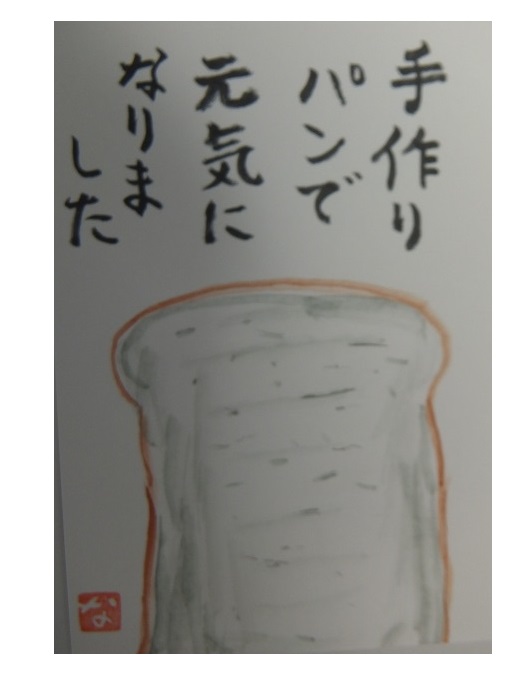 手作り
パンで
元気に
なりま
した
な